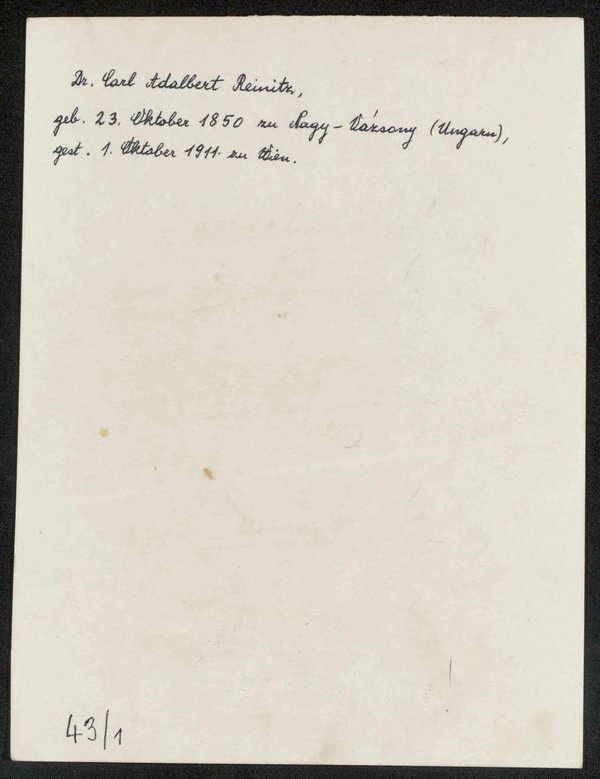 Dr. Carl Adalbert Reinitz,
geb. 23. Oktober 1850 zu Nagy-Vázsony (Ungarn),
gest. 1. Oktober 1911 zu Wien.
43/1